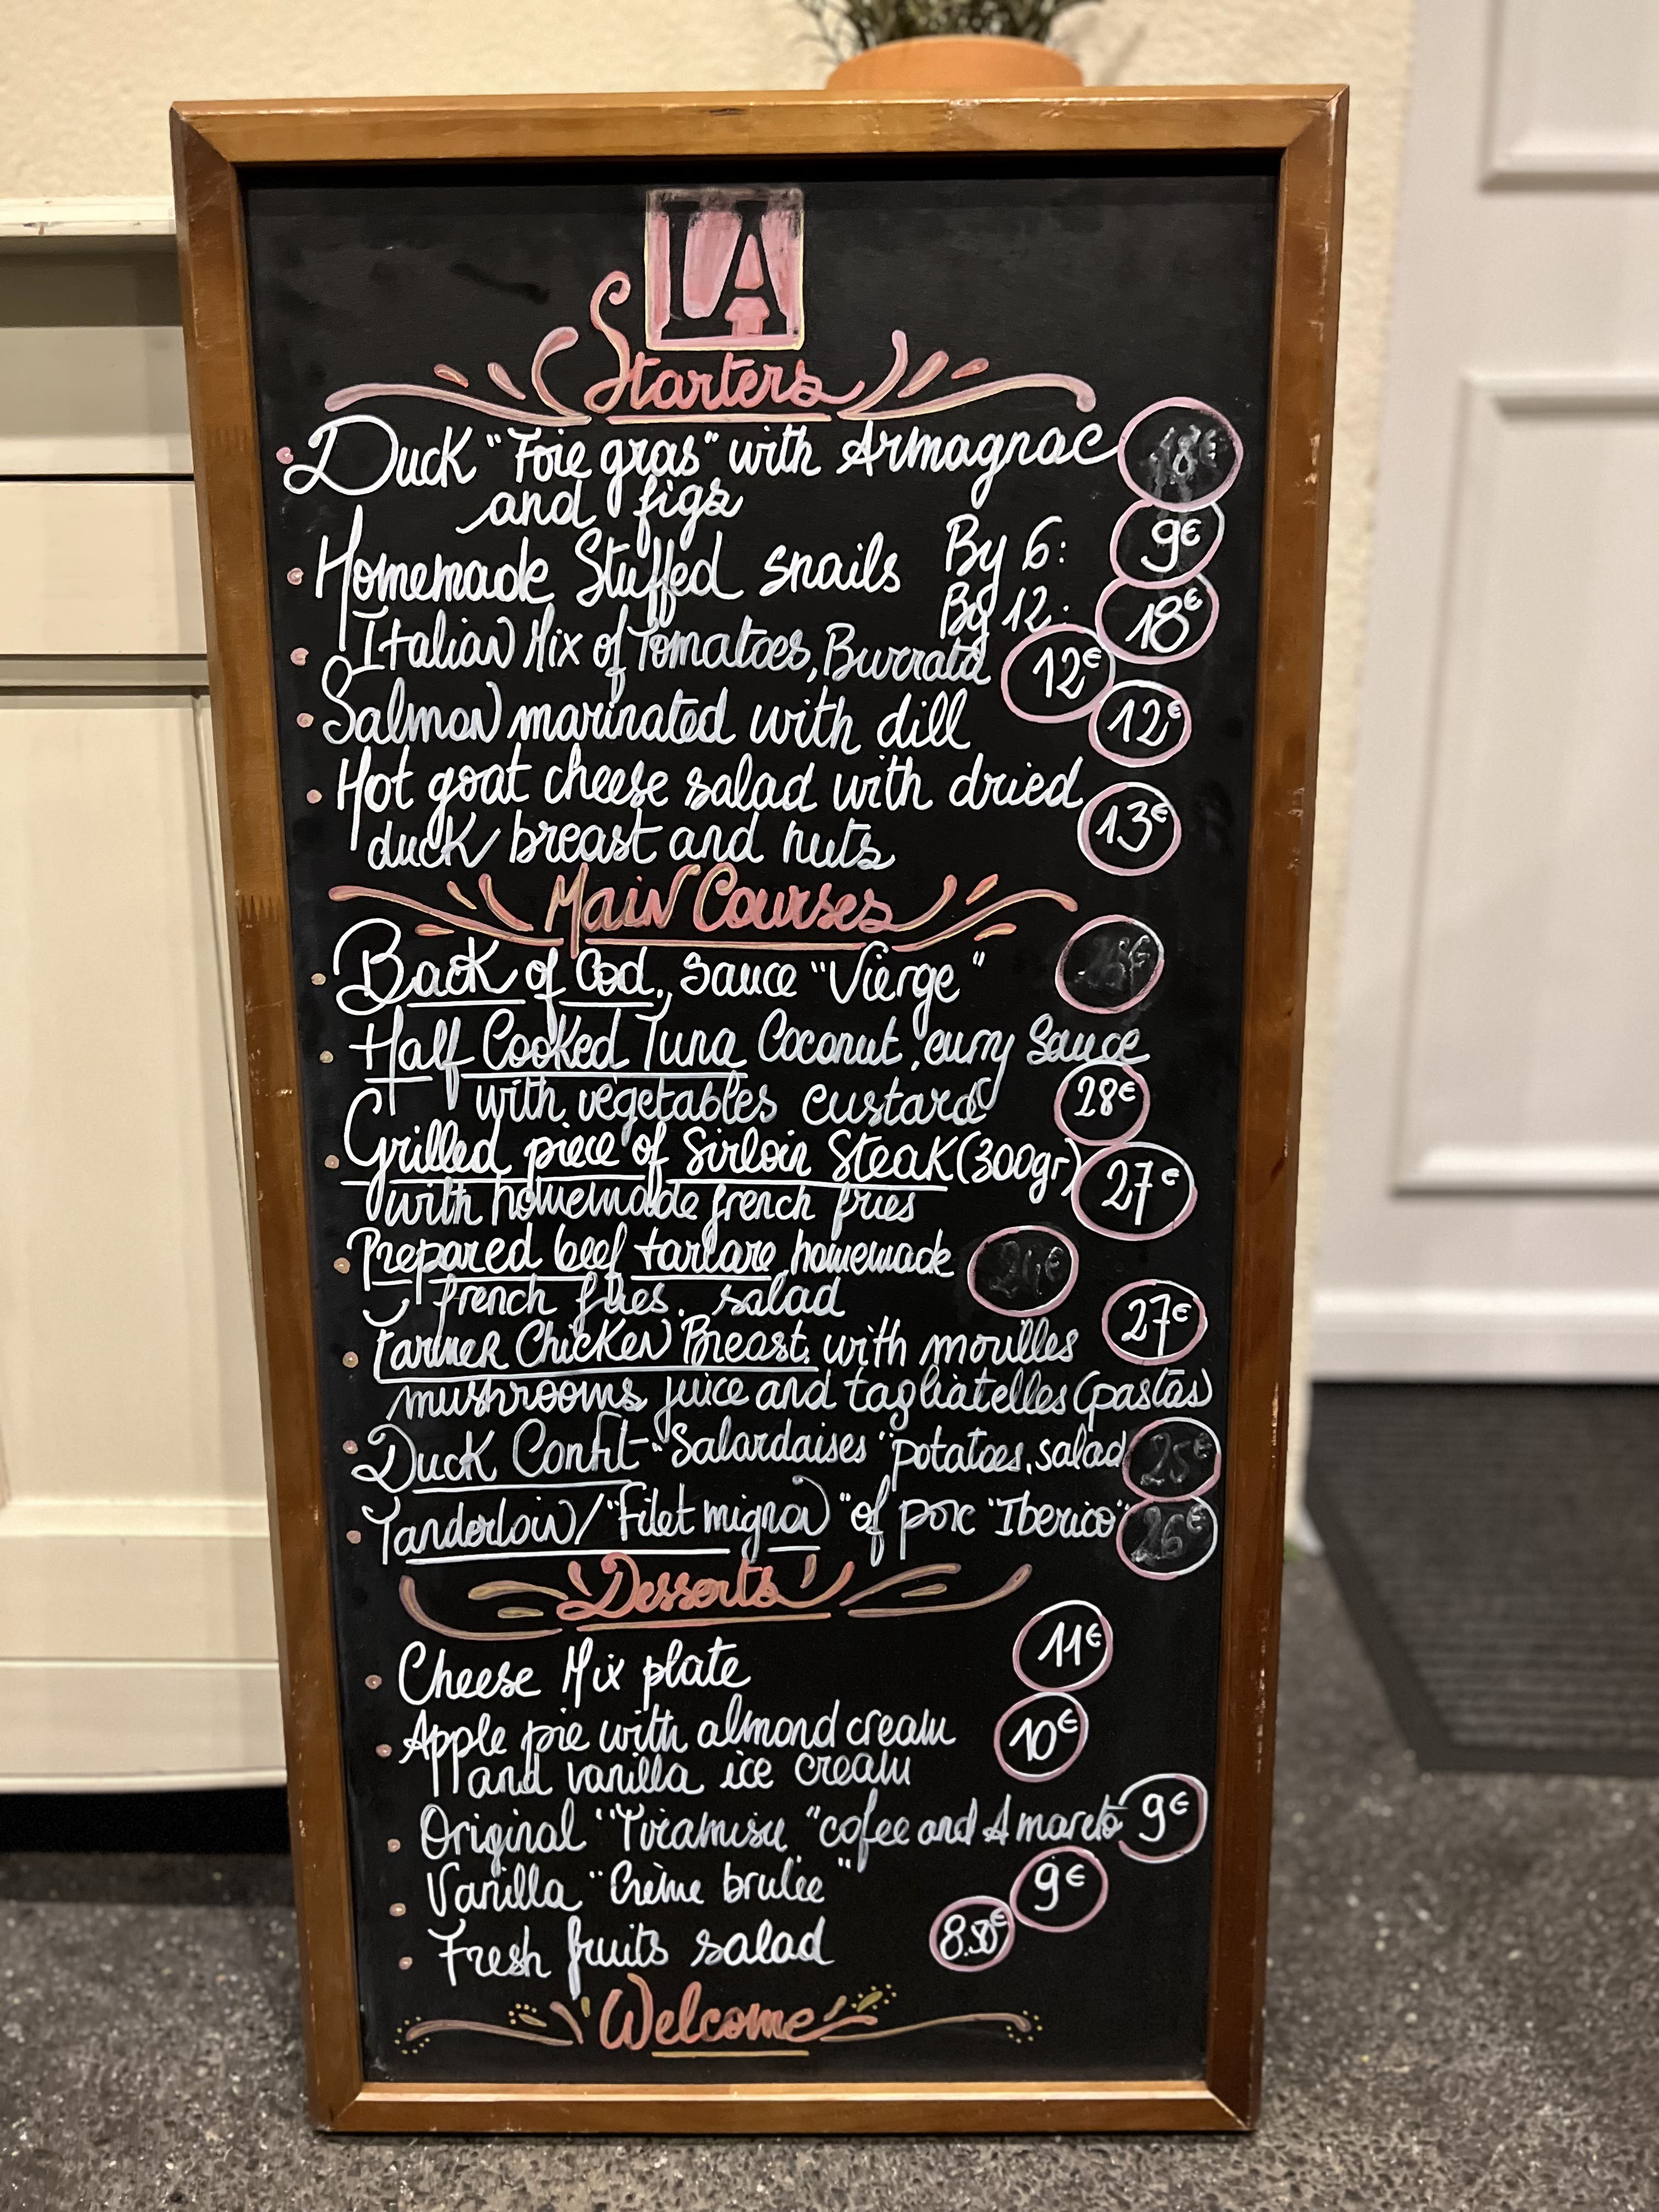 LA
Starters
Duck "Foie gras" with Armagnac 18€
and figs
Homemade Stuffed snails By 6: 9€
By 12: 18€
Italian Mix of Tomatoes, Burrata 12€
Salmon marinated with dill 12€
Hot goat cheese salad with dried
duck breast and nuts 13€
Main Courses
Back of Cod, sauce "Vierge"
Half Cooked Tuna Coconut, curry Sauce
with vegetables custard 28€
Grilled piece of Sirloin Steak (300gr) 27€
with homemade french fries
Prepared beef tartare homemade
french fries, salad
Farmer Chicken Breast, with morilles 27€
mushrooms juice and tagliatelles (pastas)
Duck Confit - "Salardaises" potatoes, salad 25€
Tanderloin/"Filet mignon" of porc "Iberico" 26€
Desserts
Cheese Mix plate 11€
Apple pie with almond cream 10€
and vanilla ice cream
Original "Tiramisu" cofee and Amareto 9€
Vanilla "Crème brulée" 9€
Fresh fruits salad 8.50€
Welcome